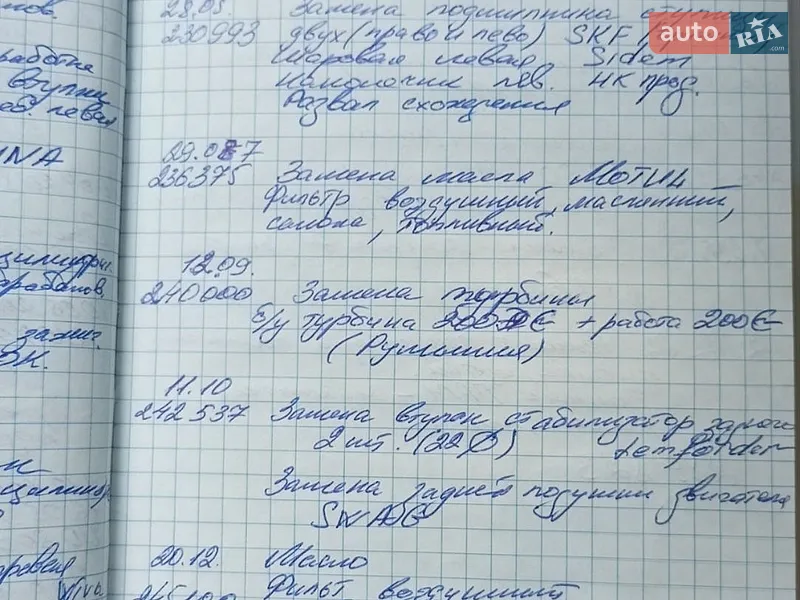 нов.
работка
втулки
об. левая
INA
цилиндр.
барабанов.
зажиг.
ОК.
цилиндр.
правая
Viva
28.03. Замена подшипника ступицы
230993 двух (право и лево) SKF
Шаровая левая, Sidem
Наконечник лев. НК прод.
Развал схождения
29.07
236375 Замена масла МОТUL
Фильтр воздушный, маслянный,
салона, топливный.
12.09.
240000 Замена турбины
б/у турбина 200€ + работа 200€
(Румыния)
11.10
242537 Замена втулок стабилизатор заднего
2 шт. (22Ø) Lemforder
Замена задней подушки двигателя
SWAG
20.12. Масло
Фильт воздушный
auto RIA
.com